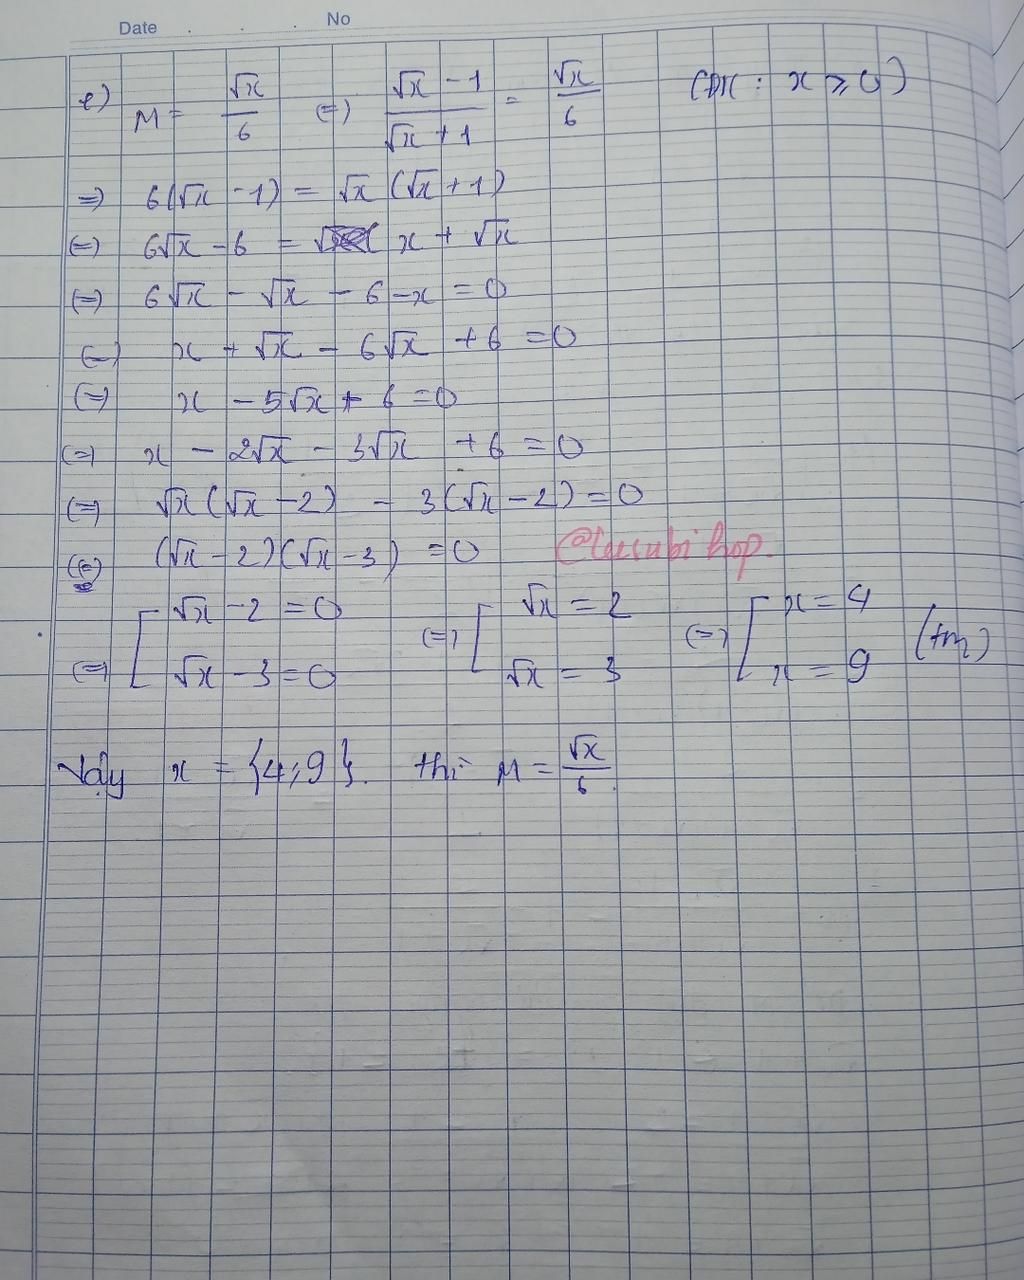 Date . . . No
e) M = √x/6 (=) (√x - 1)/(√x + 1) = √x/6 (ĐK : x ⩾ 0)
=) 6(√x - 1) = √x (√x + 1)
(=) 6√x - 6 = x + √x
(=) 6√x - √x - 6 - x = 0
(=) x + √x - 6√x + 6 = 0
(=) x - 5√x + 6 = 0
(=) x - 2√x - 3√x + 6 = 0
(=) √x (√x - 2) - 3(√x - 2) = 0
(=) (√x - 2)(√x - 3) = 0
(=) [ √x - 2 = 0 (=) [ √x = 2 (=) [ x = 4 (tm)
√x - 3 = 0 √x = 3 x = 9
Vậy x = {4;9}. thì M = √x/6.